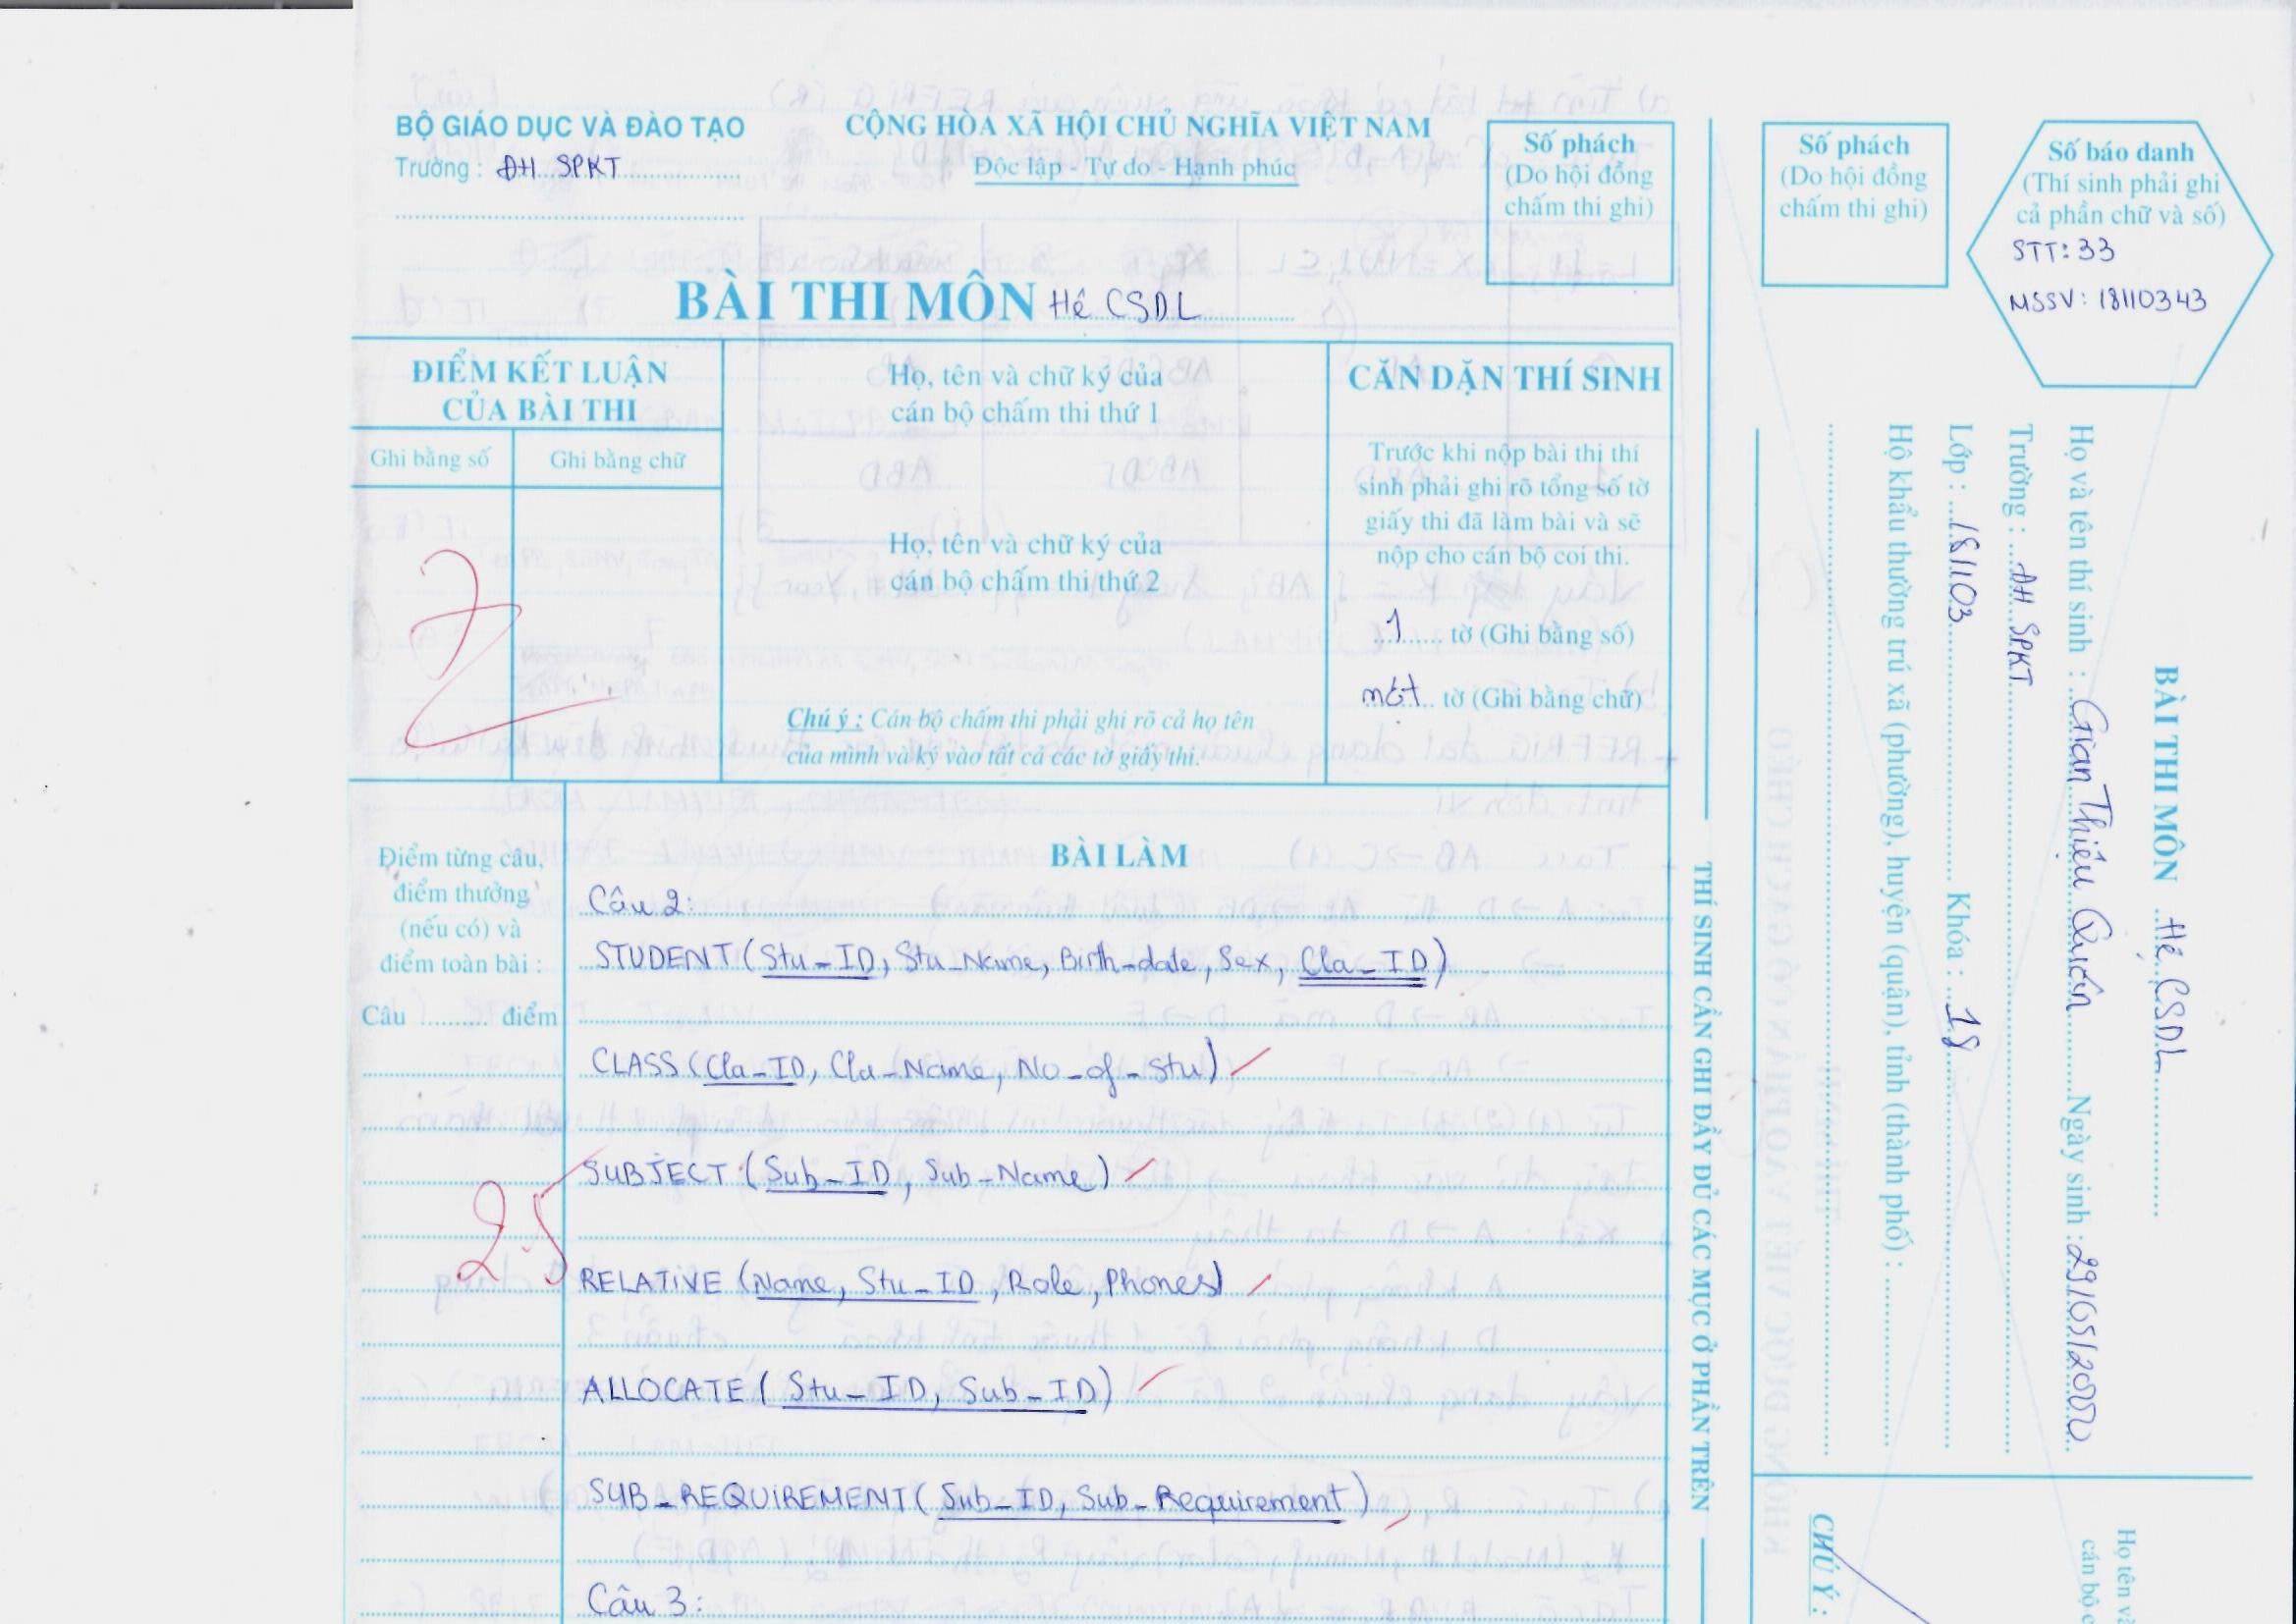 BỘ GIÁO DỤC VÀ ĐÀO TẠO
Trường : ĐH SPKT
CỘNG HÒA XÃ HỘI CHỦ NGHĨA VIỆT NAM
Độc lập - Tự do - Hạnh phúc
Số phách
(Do hội đồng
chấm thi ghi)
BÀI THI MÔN Hệ CSDL
ĐIỂM KẾT LUẬN
CỦA BÀI THI
Ghi bằng số
Ghi bằng chữ
7
Họ, tên và chữ ký của
cán bộ chấm thi thứ 1
Họ, tên và chữ ký của
cán bộ chấm thi thứ 2
Chú ý : Cán bộ chấm thi phải ghi rõ cả họ tên
của mình và ký vào tất cả các tờ giấy thi.
CĂN DẶN THÍ SINH
Trước khi nộp bài thi thí
sinh phải ghi rõ tổng số tờ
giấy thi đã làm bài và sẽ
nộp cho cán bộ coi thi.
1 tờ (Ghi bằng số)
một tờ (Ghi bằng chữ)
Điểm từng câu,
điểm thưởng
(nếu có) và
điểm toàn bài :
Câu .......... điểm
2.5
BÀI LÀM
Câu 2:
STUDENT (Stu_ID, Stu_Name, Birth_date, Sex, Cla_ID)
CLASS (Cla_ID, Cla_Name, No_of_Stu)
SUBJECT (Sub_ID, Sub_Name)
RELATIVE (Name, Stu_ID, Role, Phones)
ALLOCATE (Stu_ID, Sub_ID)
SUB_REQUIREMENT (Sub_ID, Sub_Requirement)
Câu 3:
THÍ SINH CẦN GHI ĐẦY ĐỦ CÁC MỤC Ở PHẦN TRÊN
Số phách
(Do hội đồng
chấm thi ghi)
Số báo danh
(Thí sinh phải ghi
cả phần chữ và số)
STT: 33
MSSV: 18110343
BÀI THI MÔN Hệ CSDL
Họ và tên thí sinh : Gian Thiệu Quân Ngày sinh : 29/05/2000
Trường : ĐH SPKT
Lớp : 181103 Khóa : 18
Hộ khẩu thường trú xã (phường), huyện (quận), tỉnh (thành phố) :
CHÚ Ý :
Họ tên và
cán bộ